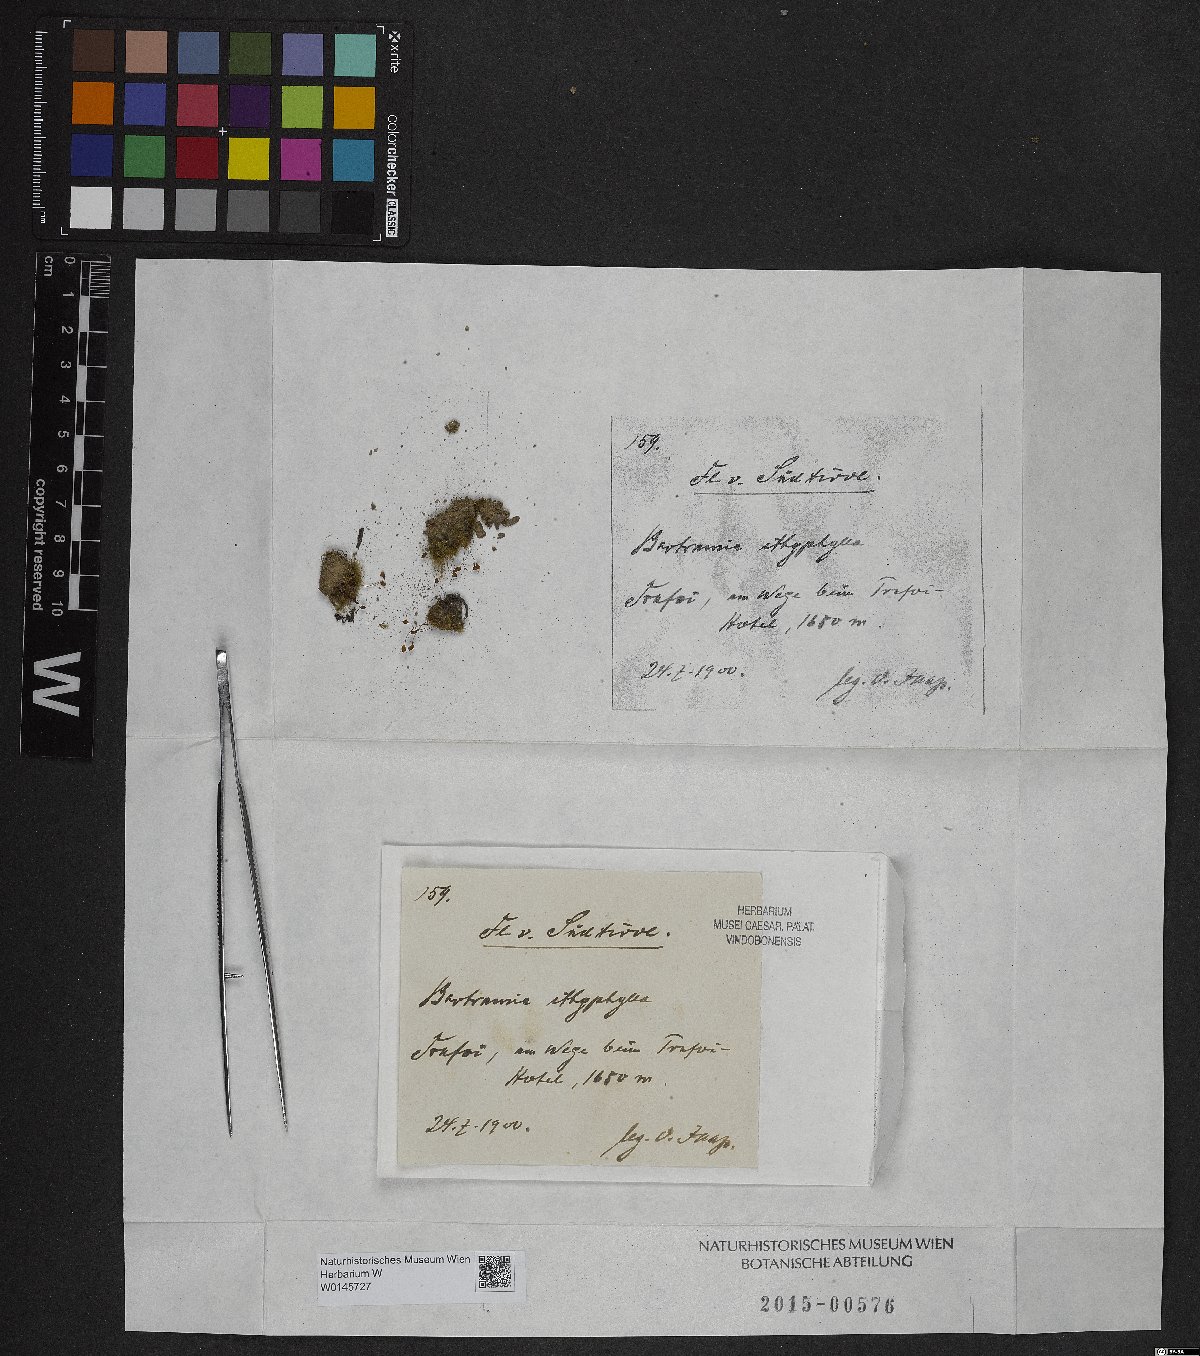 x-rite
colorchecker CLASSIC
mm
cm
0 1 2 3 4 5 6 7 8 9 10
copyright reserved
W
159.
Fl v. Südtirol.
Bartramia ithyphylla
Trafoi, am Wege beim Trafoi-
Hotel, 1650 m.
24.7.1900.
leg. O. Jaap.
159.
Fl v. Südtirol.
Bartramia ithyphylla
Trafoi, am Wege beim Trafoi-
Hotel, 1650 m.
24.7.1900.
leg. O. Jaap.
HERBARIUM
MUSEI CAESAR. PALAT.
VINDOBONENSIS
Naturhistorisches Museum Wien
Herbarium W
W0145727
NATURHISTORISCHES MUSEUM WIEN
BOTANISCHE ABTEILUNG
2015-00576